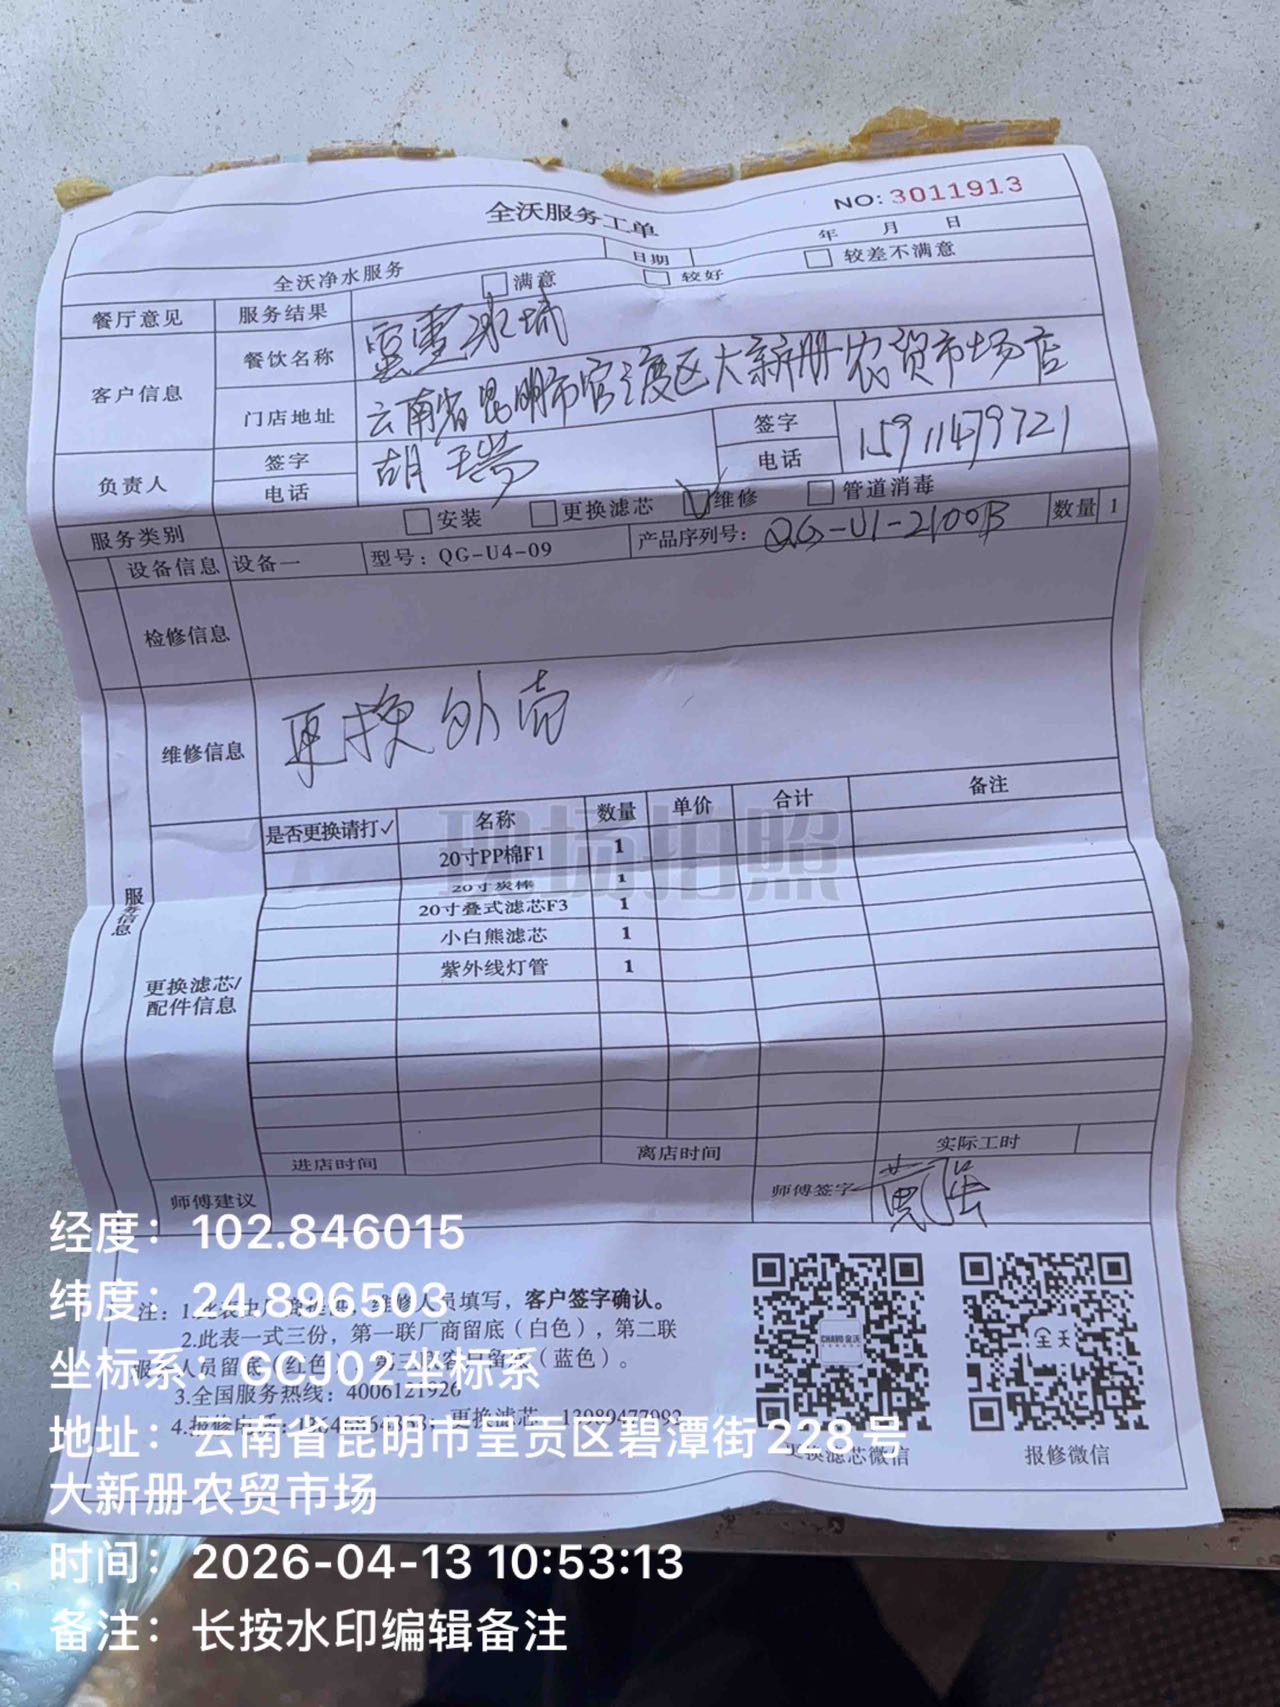 全沃服务工单
NO: 3011913
全沃净水服务 日期 年 月 日
餐厅意见 服务结果 满意 较好 较差不满意
客户信息 餐饮名称 蜜雪冰城
门店地址 云南省昆明市官渡区大新册农贸市场店
负责人 签字 胡瑞 签字
电话 电话 15911479721
服务类别 安装 更换滤芯 维修 管道消毒
设备信息 设备一 型号: QG-U4-09 产品序列号: QG-U1-2100B 数量 1
检修信息
维修信息 更换外壳
服务信息
更换滤芯/配件信息
是否更换请打✓ 名称 数量 单价 合计 备注
20寸PP棉F1 1
20寸炭棒 1
20寸叠式滤芯F3 1
小白熊滤芯 1
紫外线灯管 1
进店时间 离店时间 实际工时
师傅建议 师傅签字 黄
现场拍照
维修人员填写，客户签字确认。
2.此表一式三份，第一联厂商留底（白色），第二联
人员留底（红色） （蓝色）。
3.全国服务热线: 4006121926
更换滤芯 13989477992
CHAVO 全沃
全沃
更换滤芯微信 报修微信
经度： 102.846015
纬度： 24.896503
坐标系： GCJ02坐标系
地址： 云南省昆明市呈贡区碧潭街228号
大新册农贸市场
时间： 2026-04-13 10:53:13
备注： 长按水印编辑备注